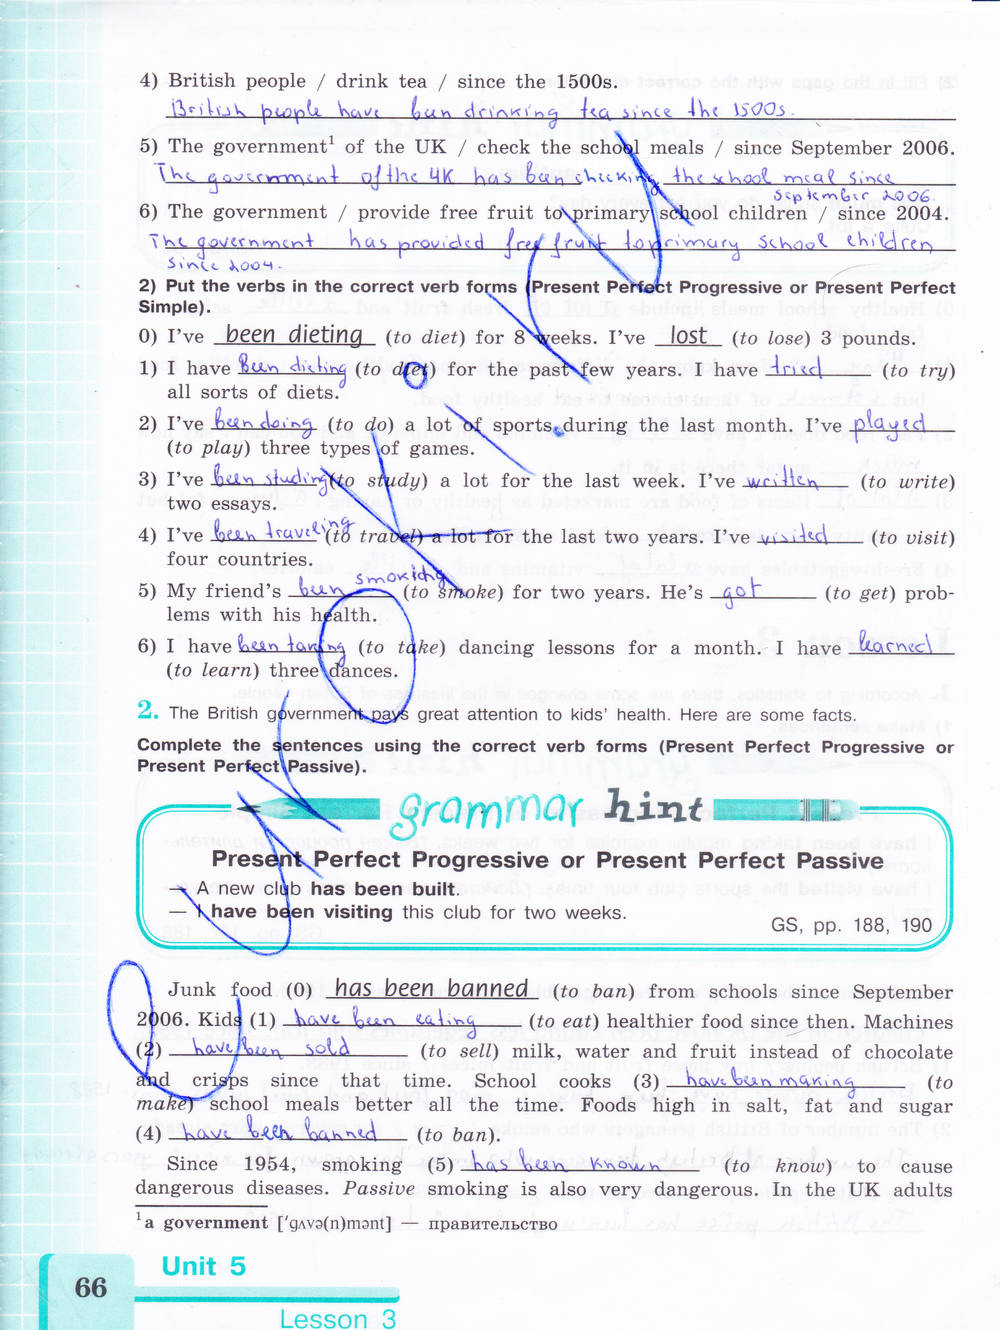 4) British people / drink tea / since the 1500s.
British people have ben drinking tea since the 1500s.
5) The government¹ of the UK / check the school meals / since September 2006.
The government of the UK has ben checking the school meal since
september 2006.
6) The government / provide free fruit to primary school children / since 2004.
The government has provided free fruit to primary school children
since 2004.
2) Put the verbs in the correct verb forms (Present Perfect Progressive or Present Perfect
Simple).
0) I've been dieting (to diet) for 8 weeks. I've lost (to lose) 3 pounds.
1) I have been dieting (to diet) for the past few years. I have tried (to try)
all sorts of diets.
2) I've been doing (to do) a lot of sports during the last month. I've played
(to play) three types of games.
3) I've been studing (to study) a lot for the last week. I've written (to write)
two essays.
4) I've been traveling (to travel) a lot for the last two years. I've visited (to visit)
four countries.
5) My friend's been smoking (to smoke) for two years. He's got (to get) prob-
lems with his health.
6) I have been taking (to take) dancing lessons for a month. I have learned
(to learn) three dances.
2. The British government pays great attention to kids' health. Here are some facts.
Complete the sentences using the correct verb forms (Present Perfect Progressive or
Present Perfect Passive).
grammar hint
Present Perfect Progressive or Present Perfect Passive
— A new club has been built.
— I have been visiting this club for two weeks.
GS, pp. 188, 190
Junk food (0) has been banned (to ban) from schools since September
2006. Kids (1) have been eating (to eat) healthier food since then. Machines
(2) have been sold (to sell) milk, water and fruit instead of chocolate
and crisps since that time. School cooks (3) have been making (to
make) school meals better all the time. Foods high in salt, fat and sugar
(4) have been banned (to ban).
Since 1954, smoking (5) has been known (to know) to cause
dangerous diseases. Passive smoking is also very dangerous. In the UK adults
¹ a government ['gʌvə(n)mənt] — правительство
Unit 5
66
Lesson 3